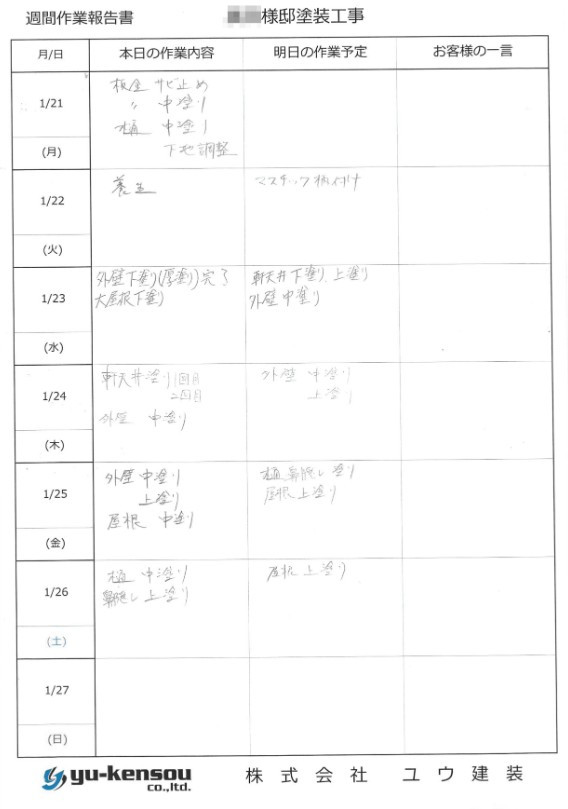 週間作業報告書 様邸塗装工事
月/日 本日の作業内容 明日の作業予定 お客様の一言
1/21
(月)
板金 サビ止め
〃 中塗り
樋 中塗り
下地調整
1/22
(火)
養生
マスチック柄付け
1/23
(水)
外壁下塗り(厚塗り)完了
大屋根下塗り
軒天井下塗り、上塗り
外壁中塗り
1/24
(木)
軒天井塗り1回目
2回目
外壁 中塗り
外壁 中塗り
上塗り
1/25
(金)
外壁 中塗り
上塗り
屋根 中塗り
樋 鼻隠し塗り
屋根上塗り
1/26
(土)
樋 中塗り
鼻隠し上塗り
屋根 上塗り
1/27
(日)
yu-kensou
co.,ltd.
株式会社 ユウ建装